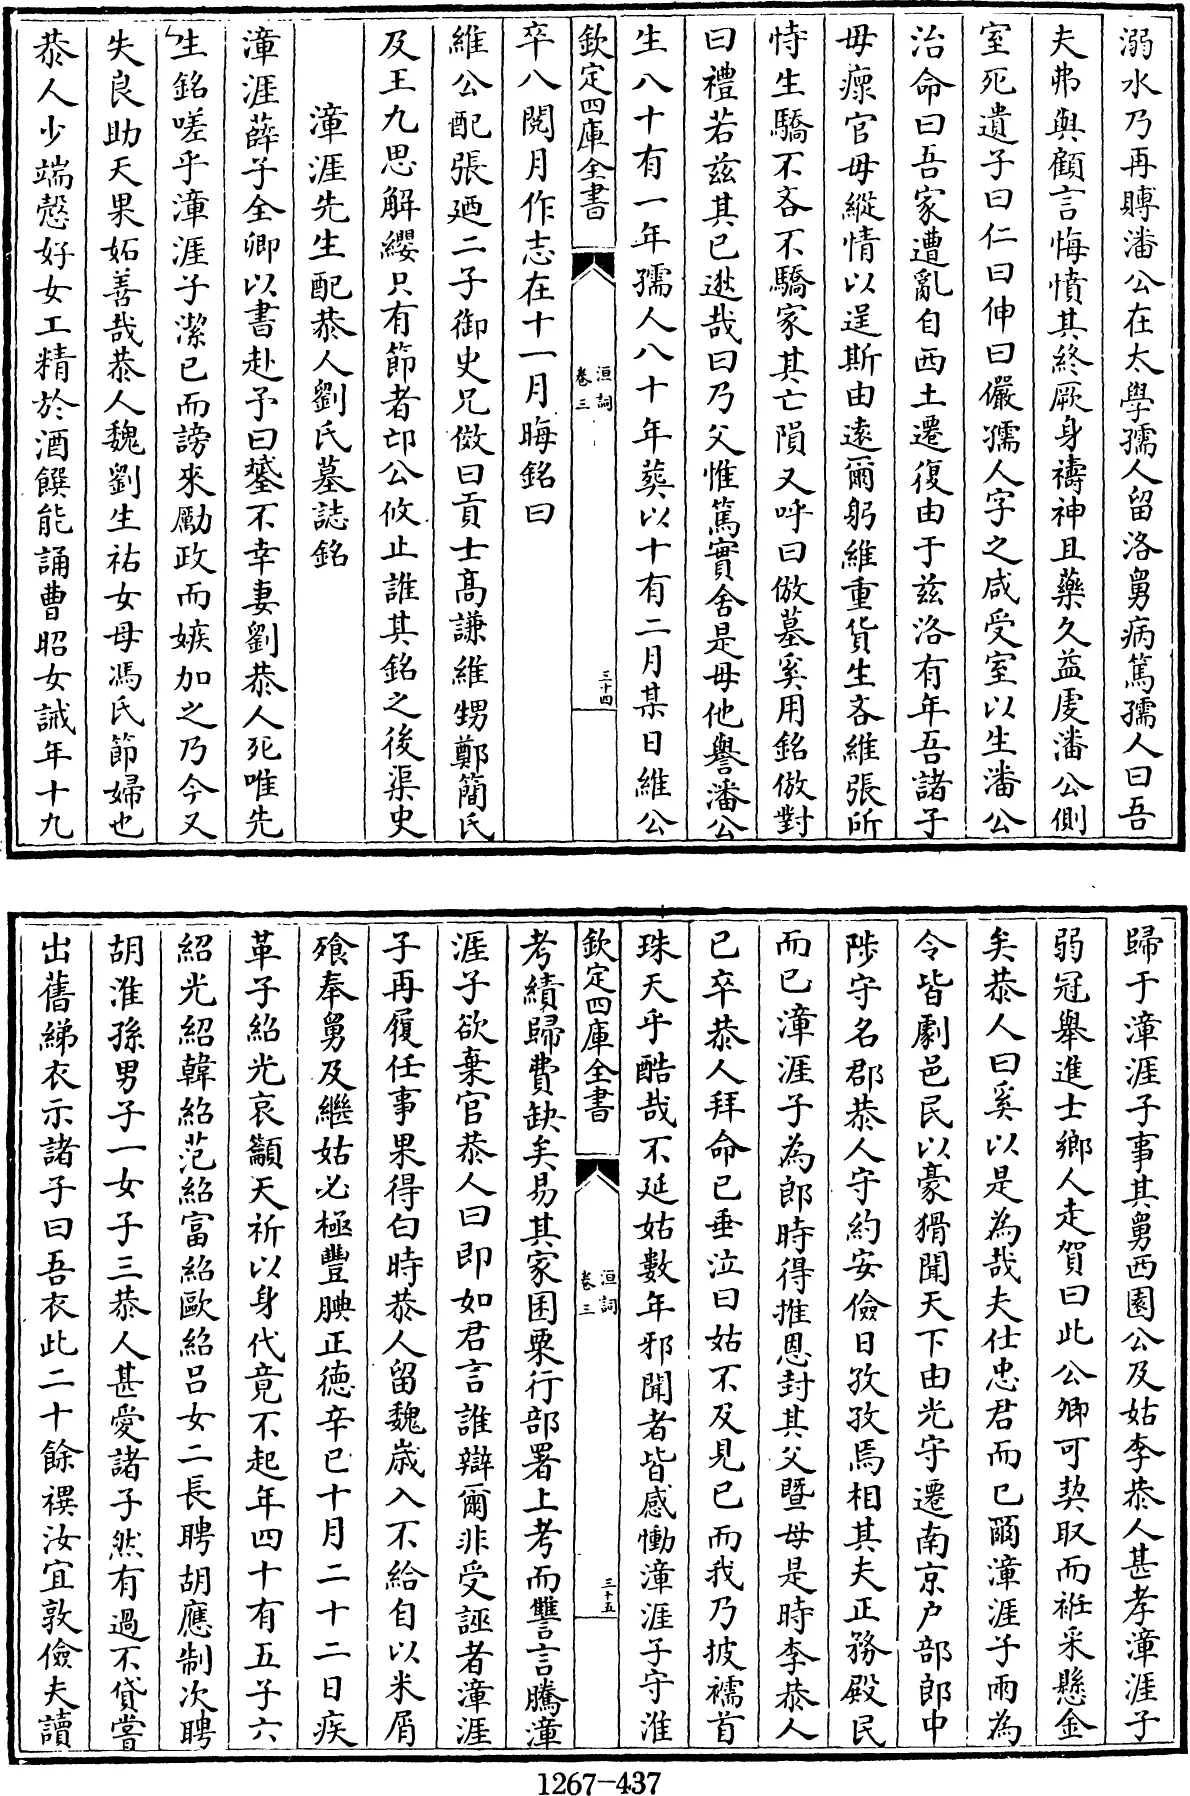 溺水乃再賻潘公在太學孺人留洛舅病篤孺人曰吾
夫弗與顧言悔憤其終厥身禱神且藥久益虔潘公側
室死遺子曰仁曰伸曰儼孺人字之咸受室以生潘公
治命曰吾家遭亂自西土遷復由于兹洛有年吾諸子
毋瘝官毋縱情以逞斯由逺爾躬維重貨生吝維張所
恃生驕不吝不驕家其亡隕又呼曰倣墓奚用銘倣對
曰禮若兹其已逖哉曰乃父惟篤實舍是毋他譽潘公
生八十有一年孺人八十年葬以十有二月某日維公
欽定四庫全書
洹詞
卷三
三十四
卒八閱月作志在十一月晦銘曰
維公配張廼二子御史兄倣曰貢士髙謙維甥鄭簡氏
及王九思解纓只有節者卭公攸止誰其銘之後渠史
漳涯先生配恭人劉氏墓誌銘
漳涯薛子全卿以書赴予曰蓥不幸妻劉恭人死唯先
生銘嗟乎漳涯子潔已而謗來勵政而嫉加之乃今又
失良助天果妬善哉恭人魏劉生祐女母馮氏節婦也
恭人少端慤好女工精於酒饌能誦曹昭女誡年十九
歸于漳涯子事其舅西園公及姑李恭人甚孝漳涯子
弱冠舉進士鄉人走賀曰此公卿可契取而袵采懸金
矣恭人曰奚以是為哉夫仕忠君而已爾漳涯子兩為
令皆劇邑民以豪猾聞天下由光守遷南京户部郎中
陟守名郡恭人守約安儉日孜孜焉相其夫正務殿民
而已漳涯子為郎時得推恩封其父暨母是時李恭人
已卒恭人拜命已垂泣曰姑不及見已而我乃披襦首
珠天乎酷哉不延姑數年邪聞者皆感慟漳涯子守淮
欽定四庫全書
洹詞
卷三
三十五
考績歸費缺矣易其家囷粟行部署上考而讐言騰漳
涯子欲棄官恭人曰即如君言誰辯爾非受誣者漳涯
子再履任事果得白時恭人留魏嵗入不給自以米屑
飱奉舅及繼姑必極豐腆正德辛巳十月二十二日疾
革子紹光哀籲天祈以身代竟不起年四十有五子六
紹光紹韓紹范紹富紹歐紹吕女二長聘胡應制次聘
胡淮孫男子一女子三恭人甚愛諸子然有過不貸嘗
出舊綈衣示諸子曰吾衣此二十餘禩汝宜敦儉夫讀
1267-437